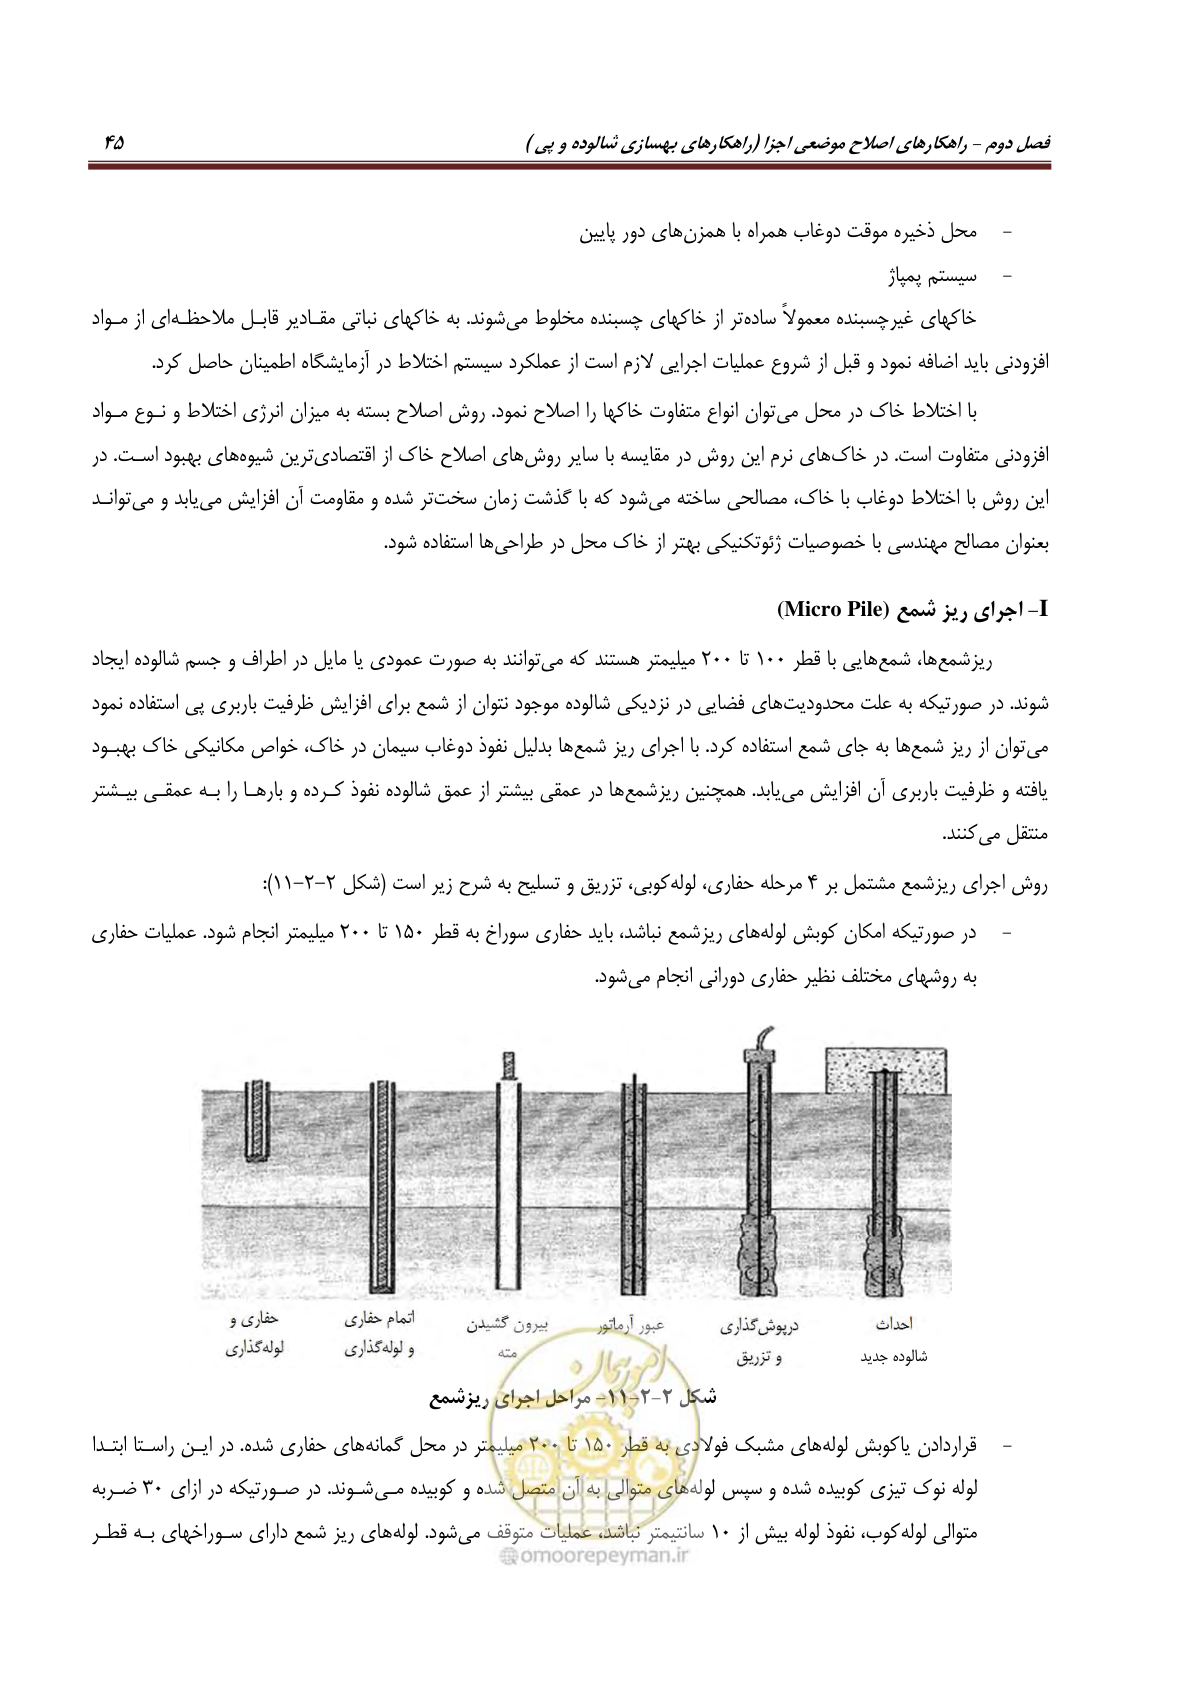 فصل دوم – راهکارهای اصلاح موضعی اجزا (راهکارهای بهسازی شالوده و پی )
۴۵
– محل ذخیره موقت دوغاب همراه با همزن‌های دور پایین
– سیستم پمپاژ
خاکهای غیرچسبنده معمولاً ساده‌تر از خاکهای چسبنده مخلوط می‌شوند. به خاکهای نباتی مقـادیر قابـل ملاحظـه‌ای از مـواد
افزودنی باید اضافه نمود و قبل از شروع عملیات اجرایی لازم است از عملکرد سیستم اختلاط در آزمایشگاه اطمینان حاصل کرد.
با اختلاط خاک در محل می‌توان انواع متفاوت خاکها را اصلاح نمود. روش اصلاح بسته به میزان انرژی اختلاط و نـوع مـواد
افزودنی متفاوت است. در خاک‌های نرم این روش در مقایسه با سایر روش‌های اصلاح خاک از اقتصادی‌ترین شیوه‌های بهبود اسـت. در
این روش با اختلاط دوغاب با خاک، مصالحی ساخته می‌شود که با گذشت زمان سخت‌تر شده و مقاومت آن افزایش می‌یابد و می‌توانـد
بعنوان مصالح مهندسی با خصوصیات ژئوتکنیکی بهتر از خاک محل در طراحی‌ها استفاده شود.
I- اجرای ریز شمع (Micro Pile)
ریزشمع‌ها، شمع‌هایی با قطر ۱۰۰ تا ۲۰۰ میلیمتر هستند که می‌توانند به صورت عمودی یا مایل در اطراف و جسم شالوده ایجاد
شوند. در صورتیکه به علت محدودیت‌های فضایی در نزدیکی شالوده موجود نتوان از شمع برای افزایش ظرفیت باربری پی استفاده نمود
می‌توان از ریز شمع‌ها به جای شمع استفاده کرد. با اجرای ریز شمع‌ها بدلیل نفوذ دوغاب سیمان در خاک، خواص مکانیکی خاک بهبـود
یافته و ظرفیت باربری آن افزایش می‌یابد. همچنین ریزشمع‌ها در عمقی بیشتر از عمق شالوده نفوذ کـرده و بارهـا را بـه عمقـی بیـشتر
منتقل می‌کنند.
روش اجرای ریزشمع مشتمل بر ۴ مرحله حفاری، لوله‌کوبی، تزریق و تسلیح به شرح زیر است (شکل ۲-۲-۱۱):
– در صورتیکه امکان کوبش لوله‌های ریزشمع نباشد، باید حفاری سوراخ به قطر ۱۵۰ تا ۲۰۰ میلیمتر انجام شود. عملیات حفاری
به روشهای مختلف نظیر حفاری دورانی انجام می‌شود.
حفاری و
لوله‌گذاری
اتمام حفاری
و لوله‌گذاری
بیرون گشیدن
مته
عبور آرماتور
درپوش‌گذاری
و تزریق
احداث
شالوده جدید
شکل ۲-۲-۱۱- مراحل اجرای ریزشمع
– قراردادن یاکوبش لوله‌های مشبک فولادی به قطر ۱۵۰ تا ۲۰۰ میلیمتر در محل گمانه‌های حفاری شده. در ایـن راسـتا ابتـدا
لوله نوک تیزی کوبیده شده و سپس لوله‌های متوالی به آن متصل شده و کوبیده مـی‌شـوند. در صـورتیکه در ازای ۳۰ ضـربه
متوالی لوله‌کوب، نفوذ لوله بیش از ۱۰ سانتیمتر نباشد، عملیات متوقف می‌شود. لوله‌های ریز شمع دارای سـوراخهای بـه قطـر
امور پیمان
@omoorepeyman.ir